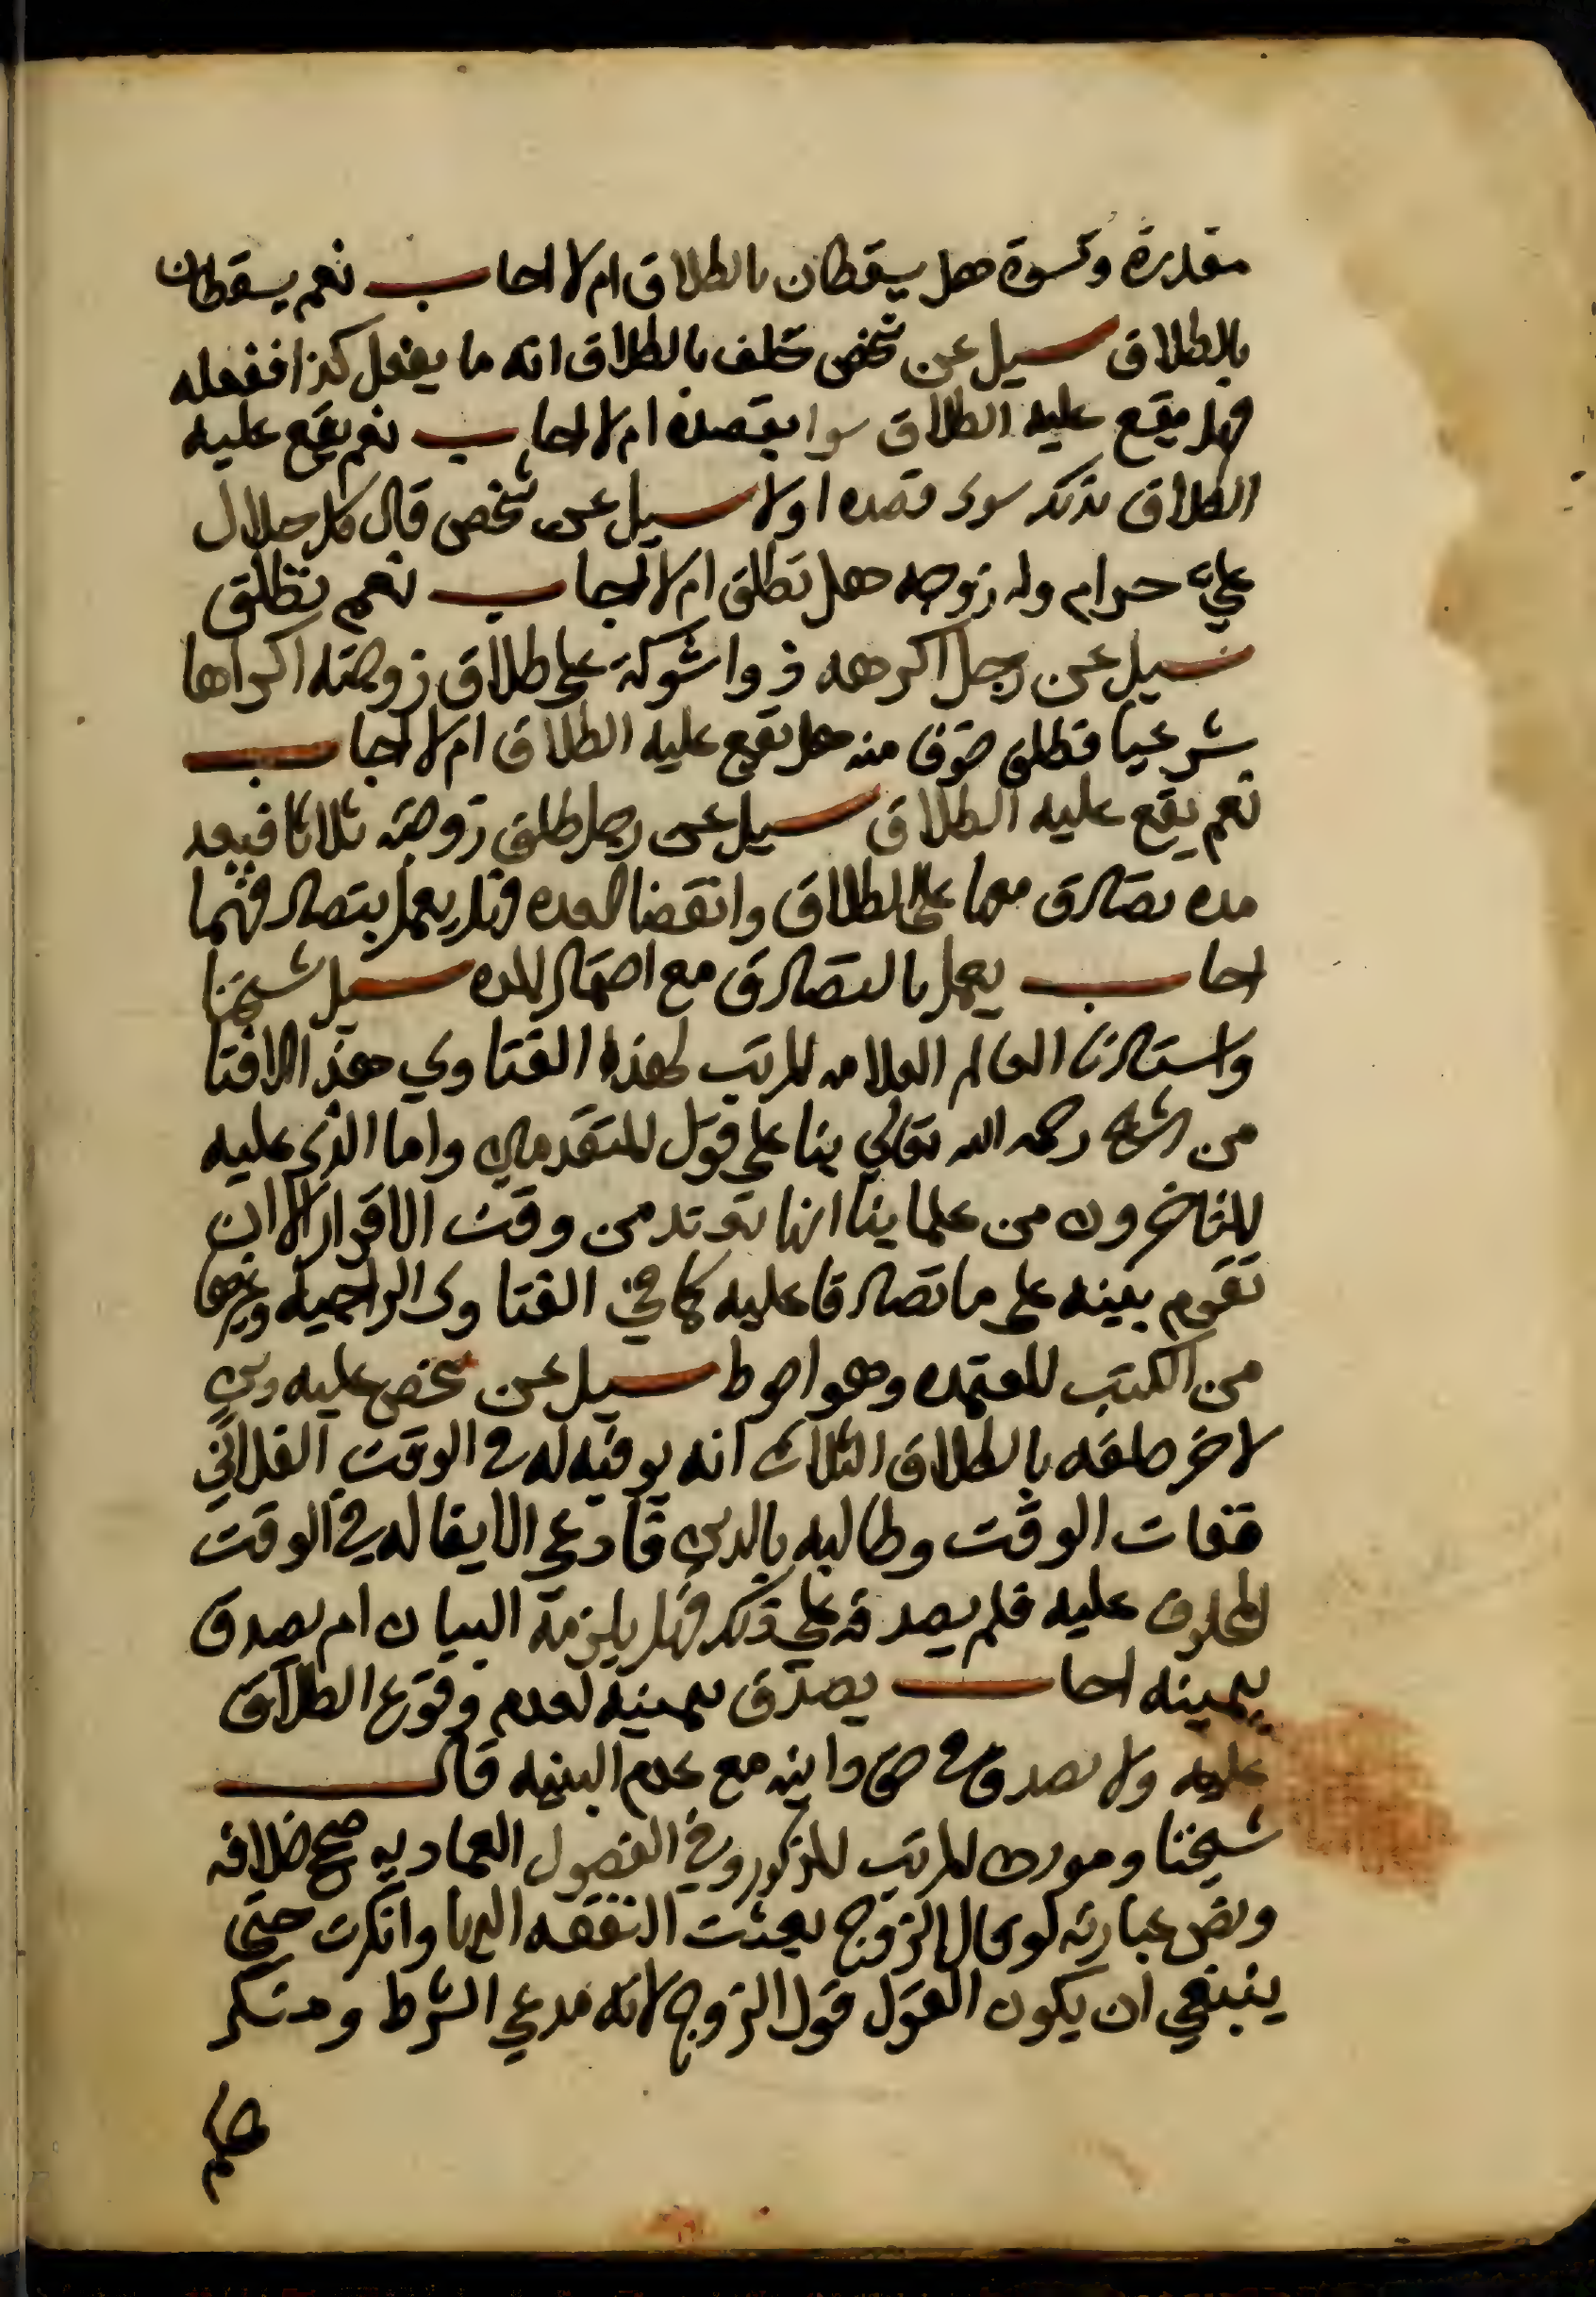 مقدرة وكسوة هل يسقطان بالطلاق ام لا اجاب نعم يسقطان
بالطلاق سيل عن شخص حلف بالطلاق انه ما يفعل كذا ففعله
فهل يقع عليه الطلاق سوا بقصده ام لا اجاب نعم يقع عليه
الطلاق بذلك سوى قصده اولا سيل عن شخص قال كل حلال
عليّ حرام وله زوجه هل تطلق ام لا اجاب نعم تطلق
سيل عن رجل اكرهه ذوا شوكة على طلاق زوجته اكراها
شرعيا فطلق خوفا منه هل يقع عليه الطلاق ام لا اجاب
نعم يقع عليه الطلاق سيل عن رجل طلق زوجته ثلاثا فبعد
مده تصادق معها على الطلاق وانقضا العده فهل يعمل بتصادقهما
اجاب يعمل بالتصادق مع احتمال المده سيل شيخنا
واستاذنا العالم العلامه المرتب لهذه الفتاوي هذا الافتا
من الشيخ رحمه الله تعالي بنا على قول المتقدمين واما الذي عليه
المتاخرون من علماينا انها تعتد من وقت الاقرار الا ان
تقوم بينه على ما تصادقا عليه كما في الفتاوى الراجيه وغيرها
من الكتب المعتمده وهو احوط سيل عن شخص عليه دين
لاخر حلفه بالطلاق الثلاث انه يوفيه له في الوقت الفلاني
ففات الوقت وطالبه بالدين فادعي الايفا له في الوقت
المحلوف عليه فلم يصدقه علي ذلك فهل يلزمه البيان ام يصدق
بيمينه اجاب يصدق بيمينه لعدم وقوع الطلاق
عليه ولا يصدق في حق داينه مع عدم البينه قال
شيخنا ومورث المرتب المذكور وفي الفصول العماديه صحح خلافه
ونص عبارته لو قال الزوج بعثت النفقه اليها وانكرت حتى
ينبغي ان يكون القول قول الزوج لانه مدعي الشرط ومنكر